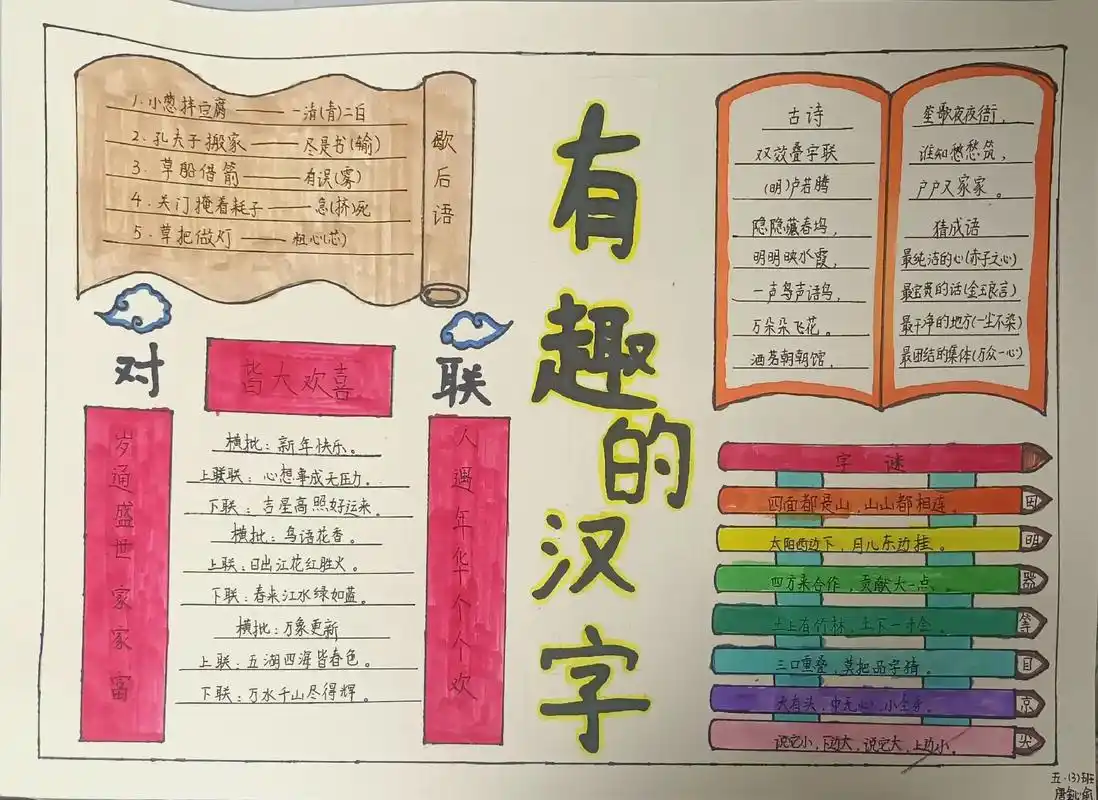 有趣的汉字
歇后语
1.小葱拌豆腐——一清(青)二白
2.孔夫子搬家——尽是书(输)
3.草船借箭——有误(雾)
4.关门掩着耗子——急(挤)死
5.草把做灯——粗心(芯)
对联
皆大欢喜
岁通盛世家家富
人遇年华个个欢
横批：新年快乐。
上联联：心想事成无压力。
下联：吉星高照好运来。
横批：鸟语花香。
上联：日出江花红胜火。
下联：春来江水绿如蓝。
横批：万象更新
上联：五湖四海皆春色。
下联：万水千山尽得辉。
古诗
双效叠字联
(明)卢若腾
隐隐藏春坞，
明明映水霞，
一声鸟声语鸟，
万朵朵飞花。
酒茗朝朝馆，
笙歌夜夜衙，
谁知愁愁筑，
户户又家家。
猜成语
最纯洁的心(赤子之心)
最宝贵的话(金玉良言)
最干净的地方(一尘不染)
最团结的集体(万众一心)
字谜
四面都是山，山山都相连。 田
太阳西边下，月儿东边挂。 明
四方来合作，贡献大一点。 器
土上有竹林，土下一寸金。 等
三口重叠，莫把品字猜。 目
大有头，中无心，小全身。 京
说它小，下边大，说它大，上边小。 尖
五·(3)班